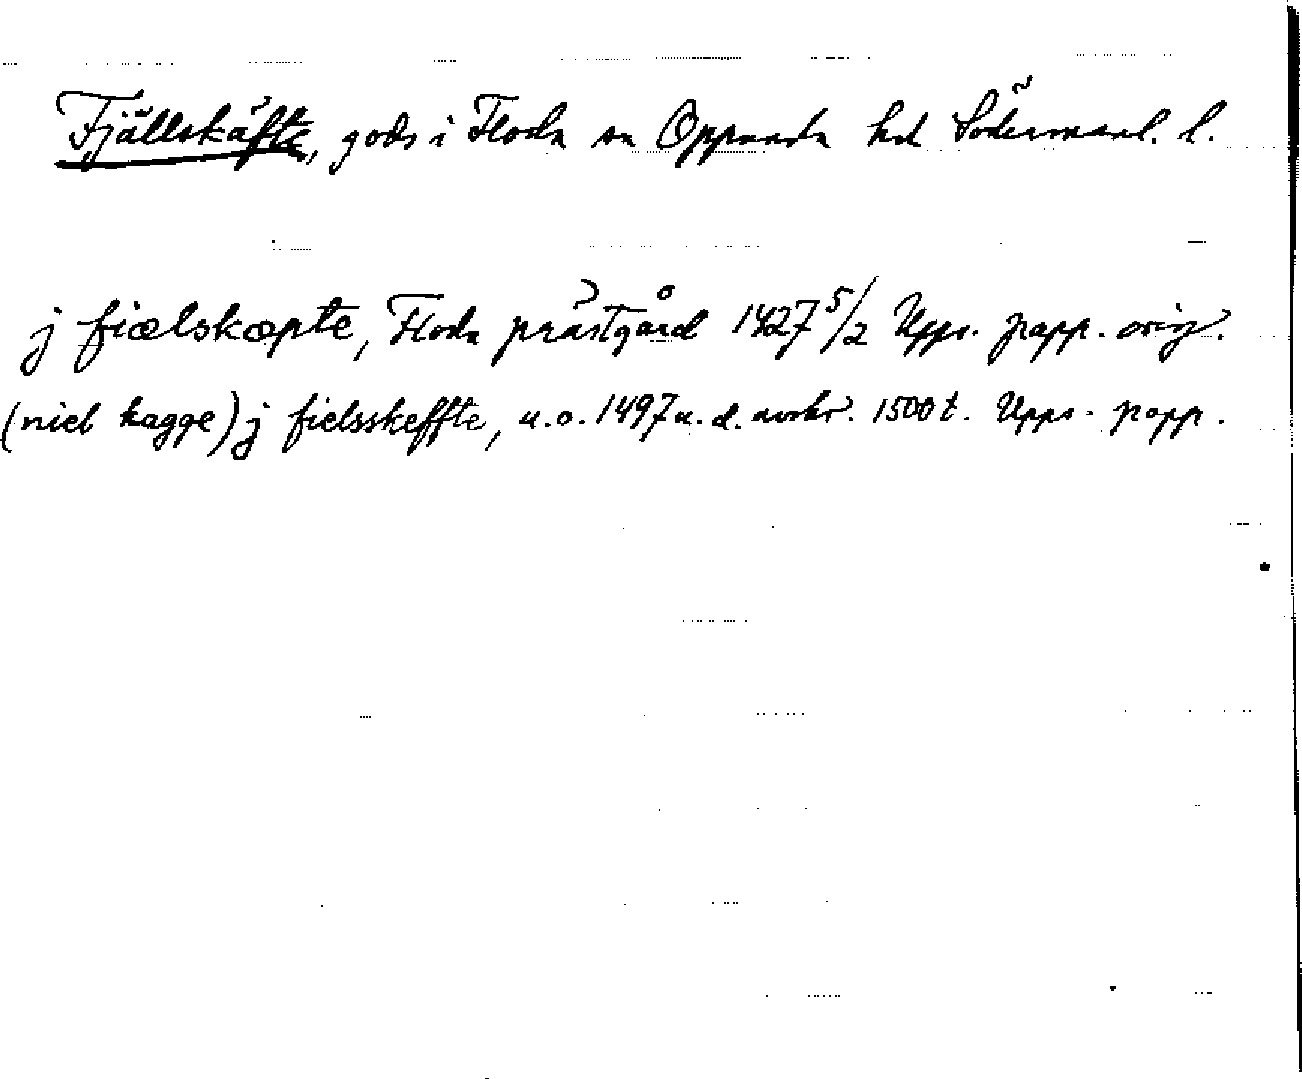 Fjällskäfte, gods i Floda sn Oppunda hd Södermanl. l.
j fiælskæpte, Floda prästgård 1427 5/2 Upps. papp. orig.
(niel kagge) j fielsskeffte, u.o. 1497 u.d. avskr. 1500 t. Upps. papp.